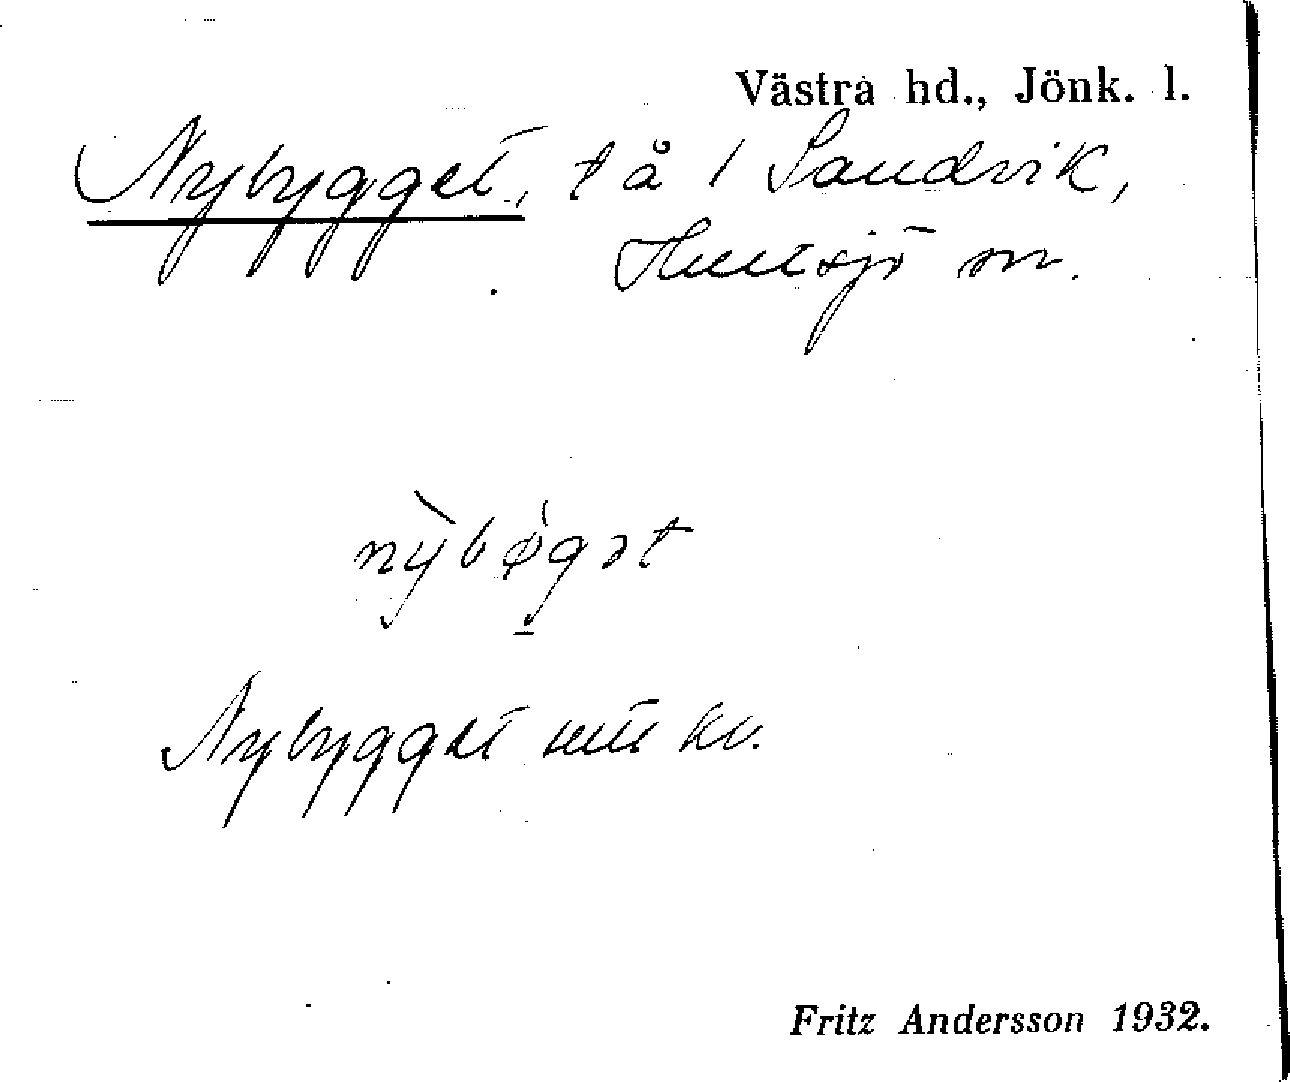 Västra hd., Jönk. l.
Nybygget, t å 1 Sandvik,
Hultsjö sn.
nỳbǿgət
Nybygget kv.
Fritz Andersson 1932.